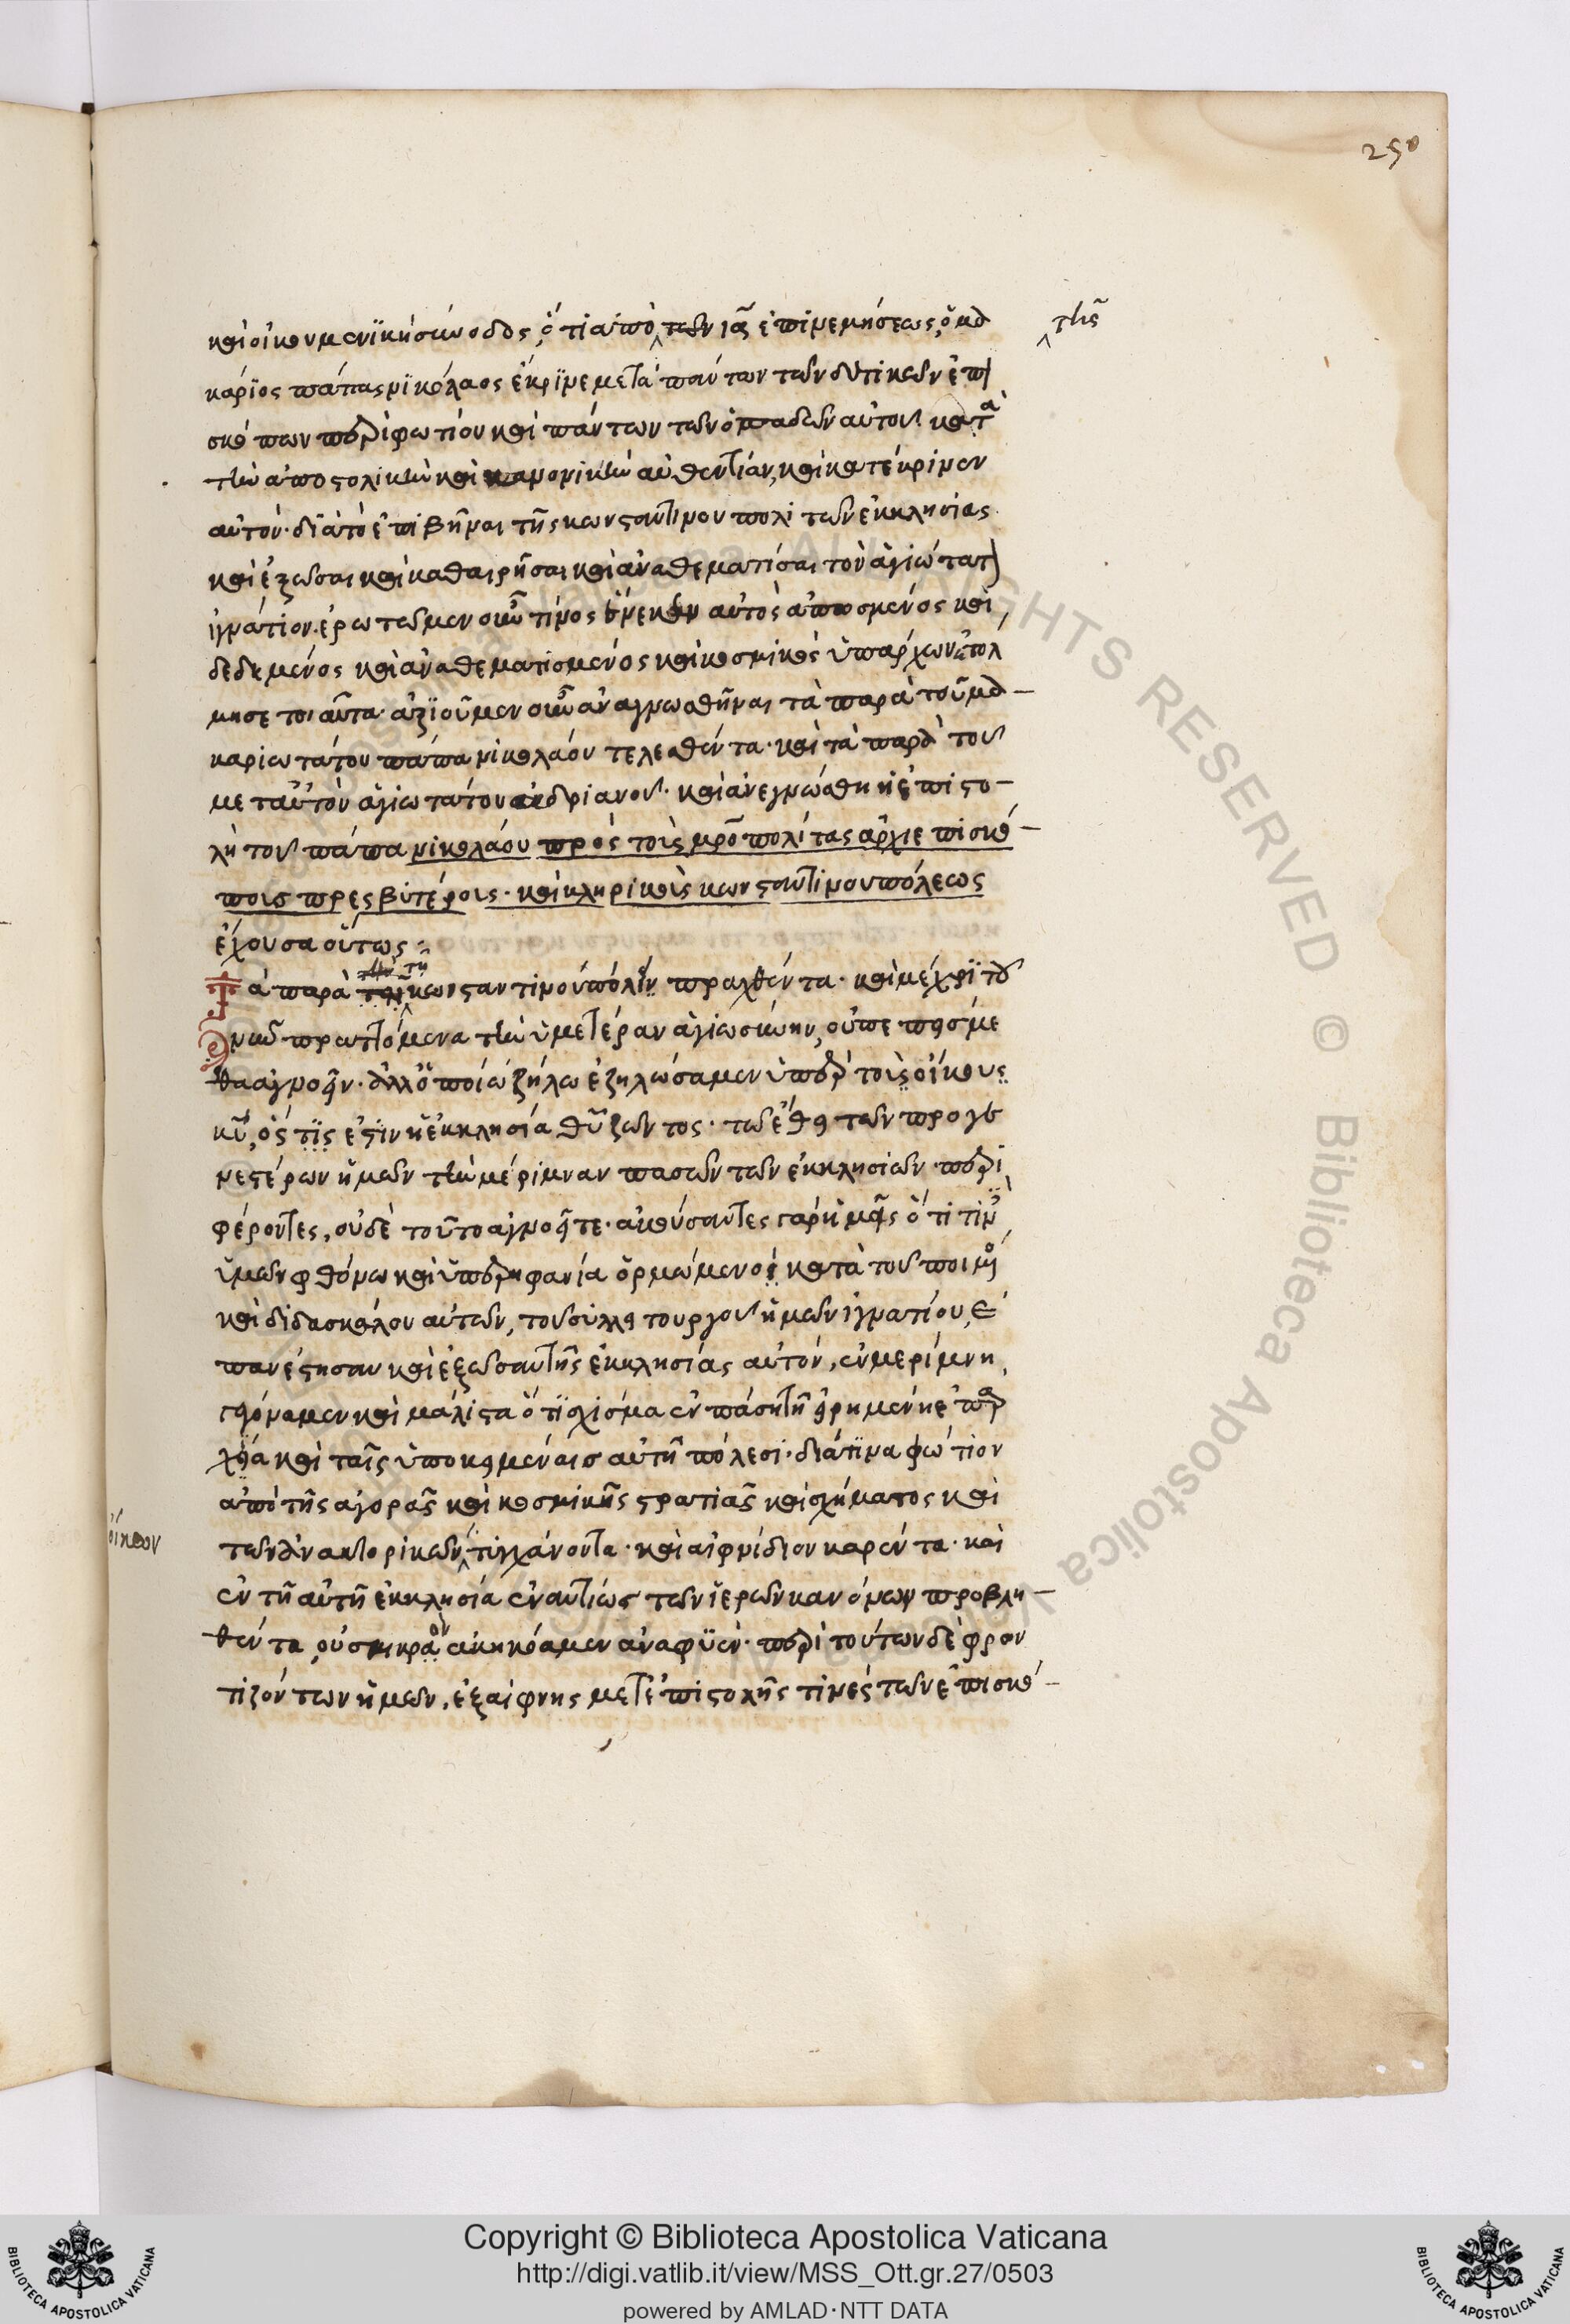 250
καὶ οἰκουμενϊκὴ σύνοδος, ὅτι ἀπὸ τῶν ιᾶς ἐπινεμήσεως, ὁ μα
τῆς
κάρϊος πάπας νϊκόλαος ἔκρϊνε μετὰ πάντων τῶν δυτικῶν ἐπι
σκόπων περὶ φωτίου καὶ πάντων τῶν ὀπαδῶν αὐτοῦ κατὰ
τὴν ἀποστολικὴν καὶ κανονικὴν αὐθεντίαν, καὶ κατέκρινεν
αὐτόν· διὰ τὸ ἐπιβῆναι τῆς κωνσταντινουπολιτῶν ἐκκλησίας
καὶ ἐξῶσαι καὶ καθαιρῆσαι καὶ ἀναθεματίσαι τὸν ἁγιώτατ
ἰγνάτιον. ἐρωτῶμεν οὖν τίνος ἕνεκεν αὐτὸς ἀπωσμένος καὶ
δεδεμένος καὶ ἀναθεματισμένος καὶ κοσμικὸς ὑπάρχων ἐτόλ
μησε τοιαῦτα· ἀξϊοῦμεν οὖν ἀναγνωσθῆναι τὰ παρὰ τοῦ μα
καριωτάτου πάπα νικολάου τελεσθέντα· καὶ τὰ παρὰ τοῦ
μετ αὐτὸν ἁγιωτάτου ἀδριανοῦ· καὶ ἀνεγνώσθη ἡ ἐπιστο
λὴ τοῦ πάπα νικολάου πρὸς τοὺς μρ͂οπολίτας ἀρχιεπισκό
ποις πρεσβυτέροις· καὶ κληρικοῖς κωνσταντινουπόλεως
ἔχουσα οὕτως
Τὰ παρὰ τὴν τῇ κωνσταντινουπόλϊν πραχθέντα· καὶ μέχρϊ τοῦ
νῦν πραττόμενα τὴν ὑμετέραν ἁγιωσύνην, οὐ πεπείσμε
θα ἀγνοεῖν· ἀλλ ὁποίῳ ζήλῳ ἐζηλώσαμεν ὑπὲρ τοὺς οἴκους
κῦ, ὅς τϊς ἐστϊν ἡ ἐκκλησία θῦ ζῶντος· τῷ ἔθει τῶν προγε
νεστέρων ἡμῶν τὴν μέριμναν πασῶν τῶν ἐκκλησιῶν περι
φέροντες, οὐδὲ τοῦτο ἀγνοεῖτε· ἀκούσαντες γὰρ ἡμεῖς ὅτι τιν
ὑμῶν φθόνῳ καὶ ὑπερηφανίᾳ ὁρμώμενοι κατὰ τοῦ ποιμ
καὶ διδασκάλου αὐτῶν, τοῦ συλλειτουργοῦ ἡμῶν ἰγνατίου, ἐ
πανέστησαν καὶ ἐξῶσαν τῆς ἐκκλησίας αὐτόν, ἐν μερίμνῃ
γεγόναμεν καὶ μάλιστα ὅτϊ σχίσμα ἐν πάσῃ τῇ εἰρημένῃ ἐπαρ
χίᾳ καὶ ταῖς ὑποκειμέναις αὐτῇ πόλεσι· διά τϊνα φώτιον
ἀπὸ τῆς ἀγορᾶς καὶ κοσμικῆς στρατιᾶς καὶ σχήματος καὶ
οἴκων
τῶν ἀνακτορικῶν τυγχάνοντα· καὶ αἰφνίδιον καρέντα· καὶ
ἐν τῇ αὐτῇ ἐκκλησίᾳ ἐναντίως τῶν ἱερῶν κανόνων προβλη
θέντα, οὐ σμικρὸν ἀκηκόαμεν ἀναφϋέν· περὶ τούτων δὲ φρον
τιζόντων ἡμῶν, ἐξαίφνης μετ ἐπιστολῆς τινὲς τῶν ἐπισκό
Copyright © Biblioteca Apostolica Vaticana
http://digi.vatlib.it/view/MSS_Ott.gr.27/0503
powered by AMLAD·NTT DATA
BIBLIOTECA APOSTOLICA VATICANA
BIBLIOTECA APOSTOLICA VATICANA